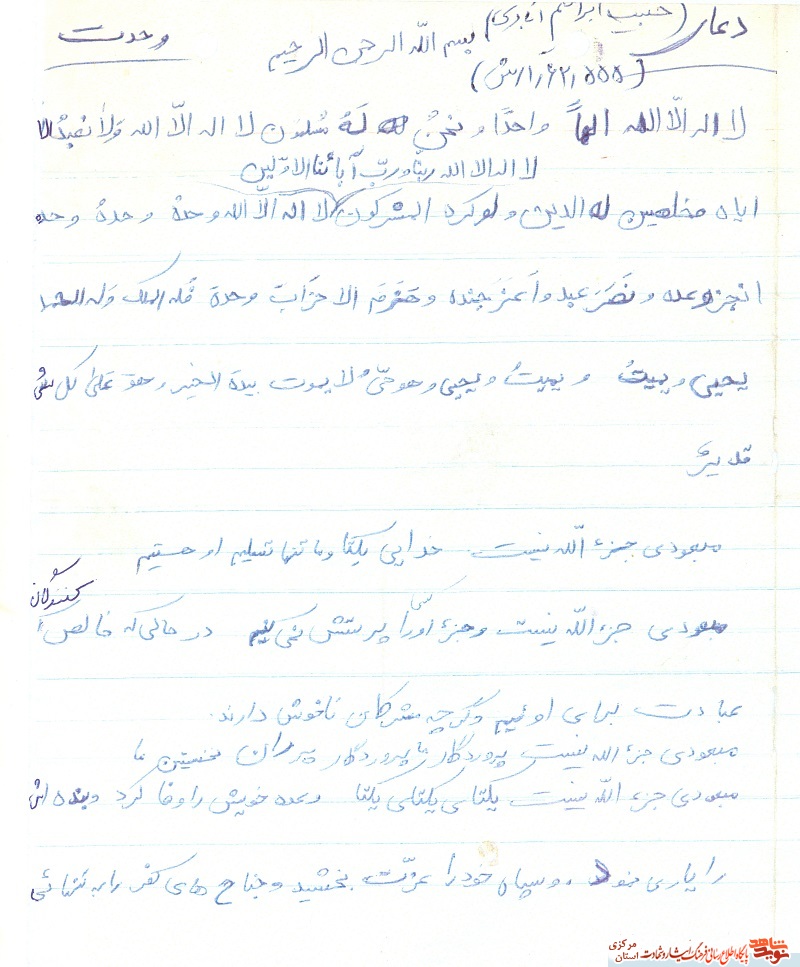 دعای وحدت
(حبیب ابراهیم
بسم الله الرحمن الرحیم
لا اله الّا الله الهاً واحدًا و نحنُ لَهُ مُسلمون لا اله الّا الله وَلا نعبدُ الّا
لا اله الا الله ربنّا و ربّ آبائنا الاوّلین
ایاه مخلصین له الدین و لو کره المشرکون لا اله الّا الله وحدهُ وحدهُ وحده
انجز وعده و نَصَرَ عبده و اَعَزّ جنده و هَزَمَ الاحزاب وحده فله الملک وله الحمد
یحیی و یمیتُ و یمیتُ و یحیی و هو حیّ لا یموت بیده الخیر و هو عَلیٰ کل شیٍ
قدیرٌ
معبودی جزء الله نیست خدایی یکتا و ما تنها تسلیم او هستیم
معبودی جزء الله نیست و جزء او کسی را پرستش نمی کنیم در حالی که خالص
کنندگان
عبادت برای اوئیم و گر چه مشرکان ناخوش دارند.
معبودی جزء الله نیست پروردگار ما پروردگار پدران نخستین ما
معبودی جزء الله نیست یکتای یکتای یکتا وعده خویش را وفا کرد و بنده اش
را یاری نمود و سپاه خود را عزّت بخشید و جناح های کفر را به تنهائی
نوید شاهد
پایگاه اطلاع رسانی فرهنگ ایثار و شهادت استان مرکزی